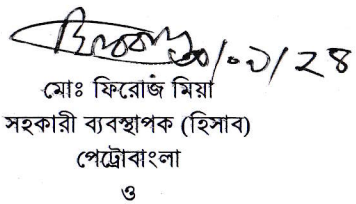 মোঃ ফিরোজ মিয়া
সহকারী ব্যবস্থাপক (হিসাব)
পেট্রোবাংলা
ও